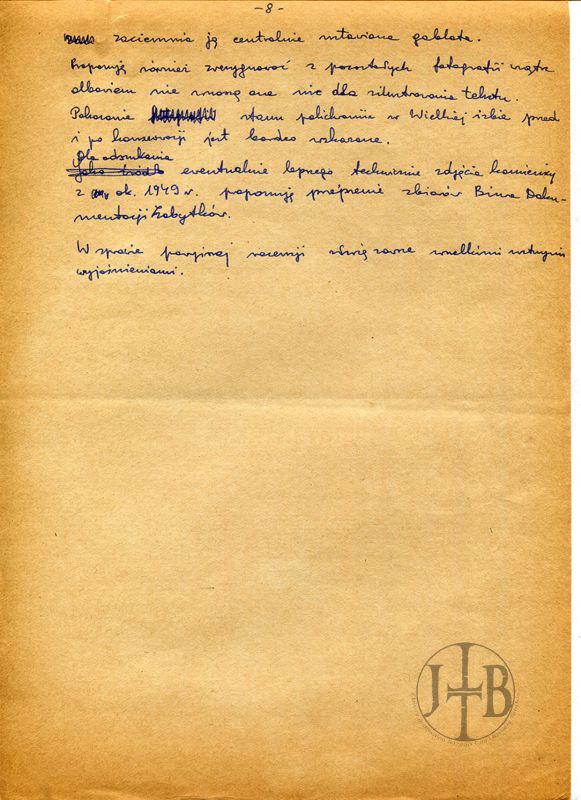 - 8 -
zaciemnia ją centralnie wstawiona gablota.
Proponuję również zrezygnować z pozostałych fotografii wnętrz
albowiem nie wnoszą one nic dla zilustrowania tekstu.
Pokazanie stanu polichromii w Wielkiej izbie przed
i po konserwacji jest bardzo wskazane.
Dla odszukania
eventualnie lepszego technicznie zdjęcia kamienicy
z ok. 1949 r. proponuję przejrzenie zbiorów Biura Doku-
mentacji Zabytków.
W sprawie powyższej recenzji służę zawsze wszelkimi ustnymi
wyjaśnieniami.
JTB